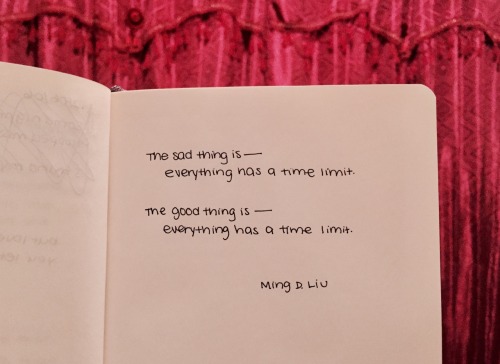 The sad thing is —
everything has a time limit.
The good thing is —
everything has a time limit.
Ming D. Liu